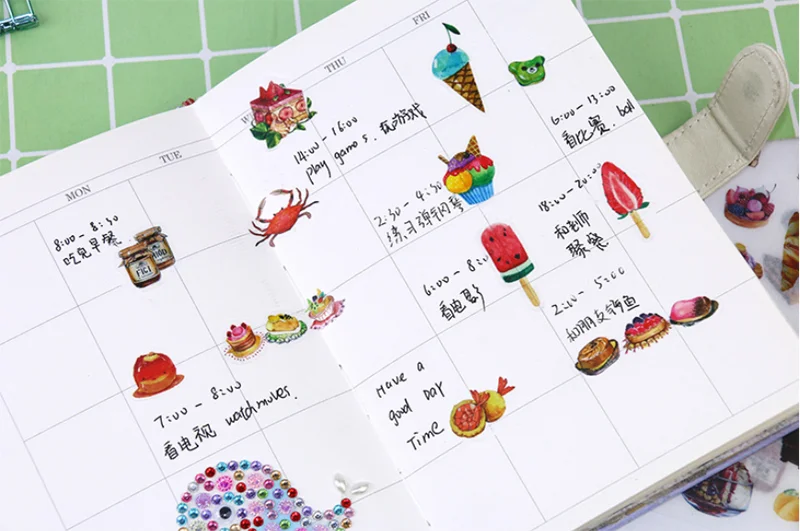 MON
TUE
THU
FRI
8:00 - 8:30
吃完早餐
FIGI
7:00 - 8:00
看电视 watch
14:00 - 16:00
play games. 玩游戏
2:30 - 4:30
练习弹钢琴
6:00 - 8:00
看电影
Have a
good Day
Time
6:00 - 13:00
看比赛. ball
18:00 - 20:00
和老师
聚餐
2:00 - 5:00
和朋友钓鱼